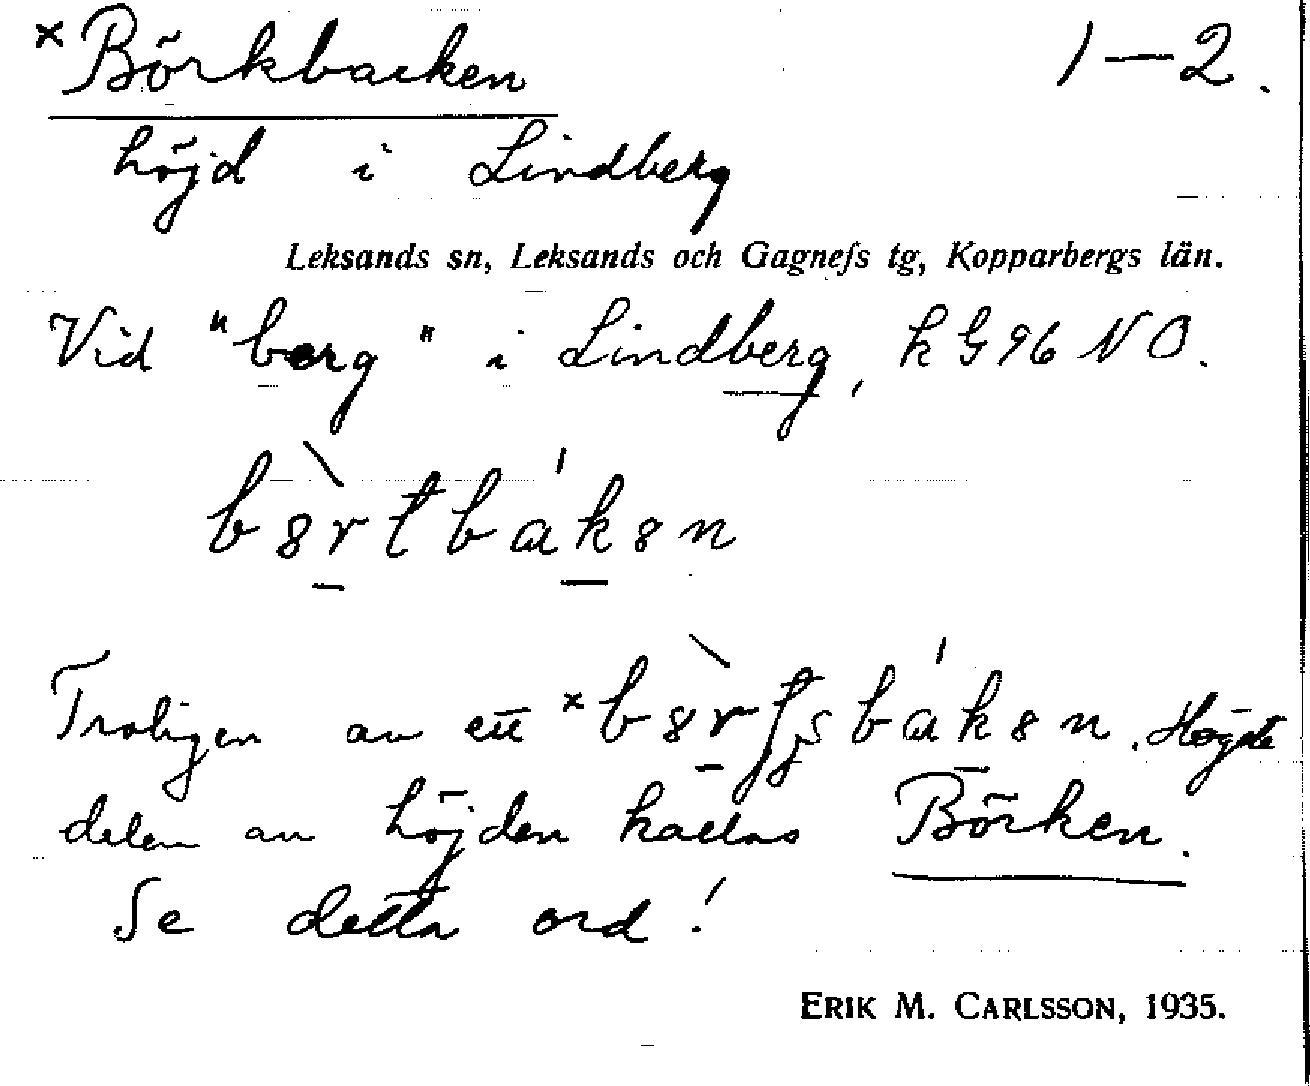 ×Börkbacken 1–2.
höjd i Lindberg
Leksands sn, Leksands och Gagnefs tg, Kopparbergs län.
Vid "berg" i Lindberg, kG96 NO.
Troligen av ett . Högsta
delen av höjden kallas Börken.
Se detta ord!
ERIK M. CARLSSON, 1935.